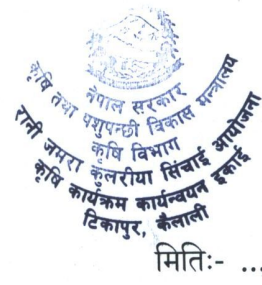 नेपाल सरकार
कृषि तथा पशुपन्छी विकास मन्त्रालय
कृषि विभाग
रानी जमरा कुलरीया सिंचाई आयोजना
कृषि कार्यक्रम कार्यन्वयन इकाई
टिकापुर, कैलाली
मितिः- ...